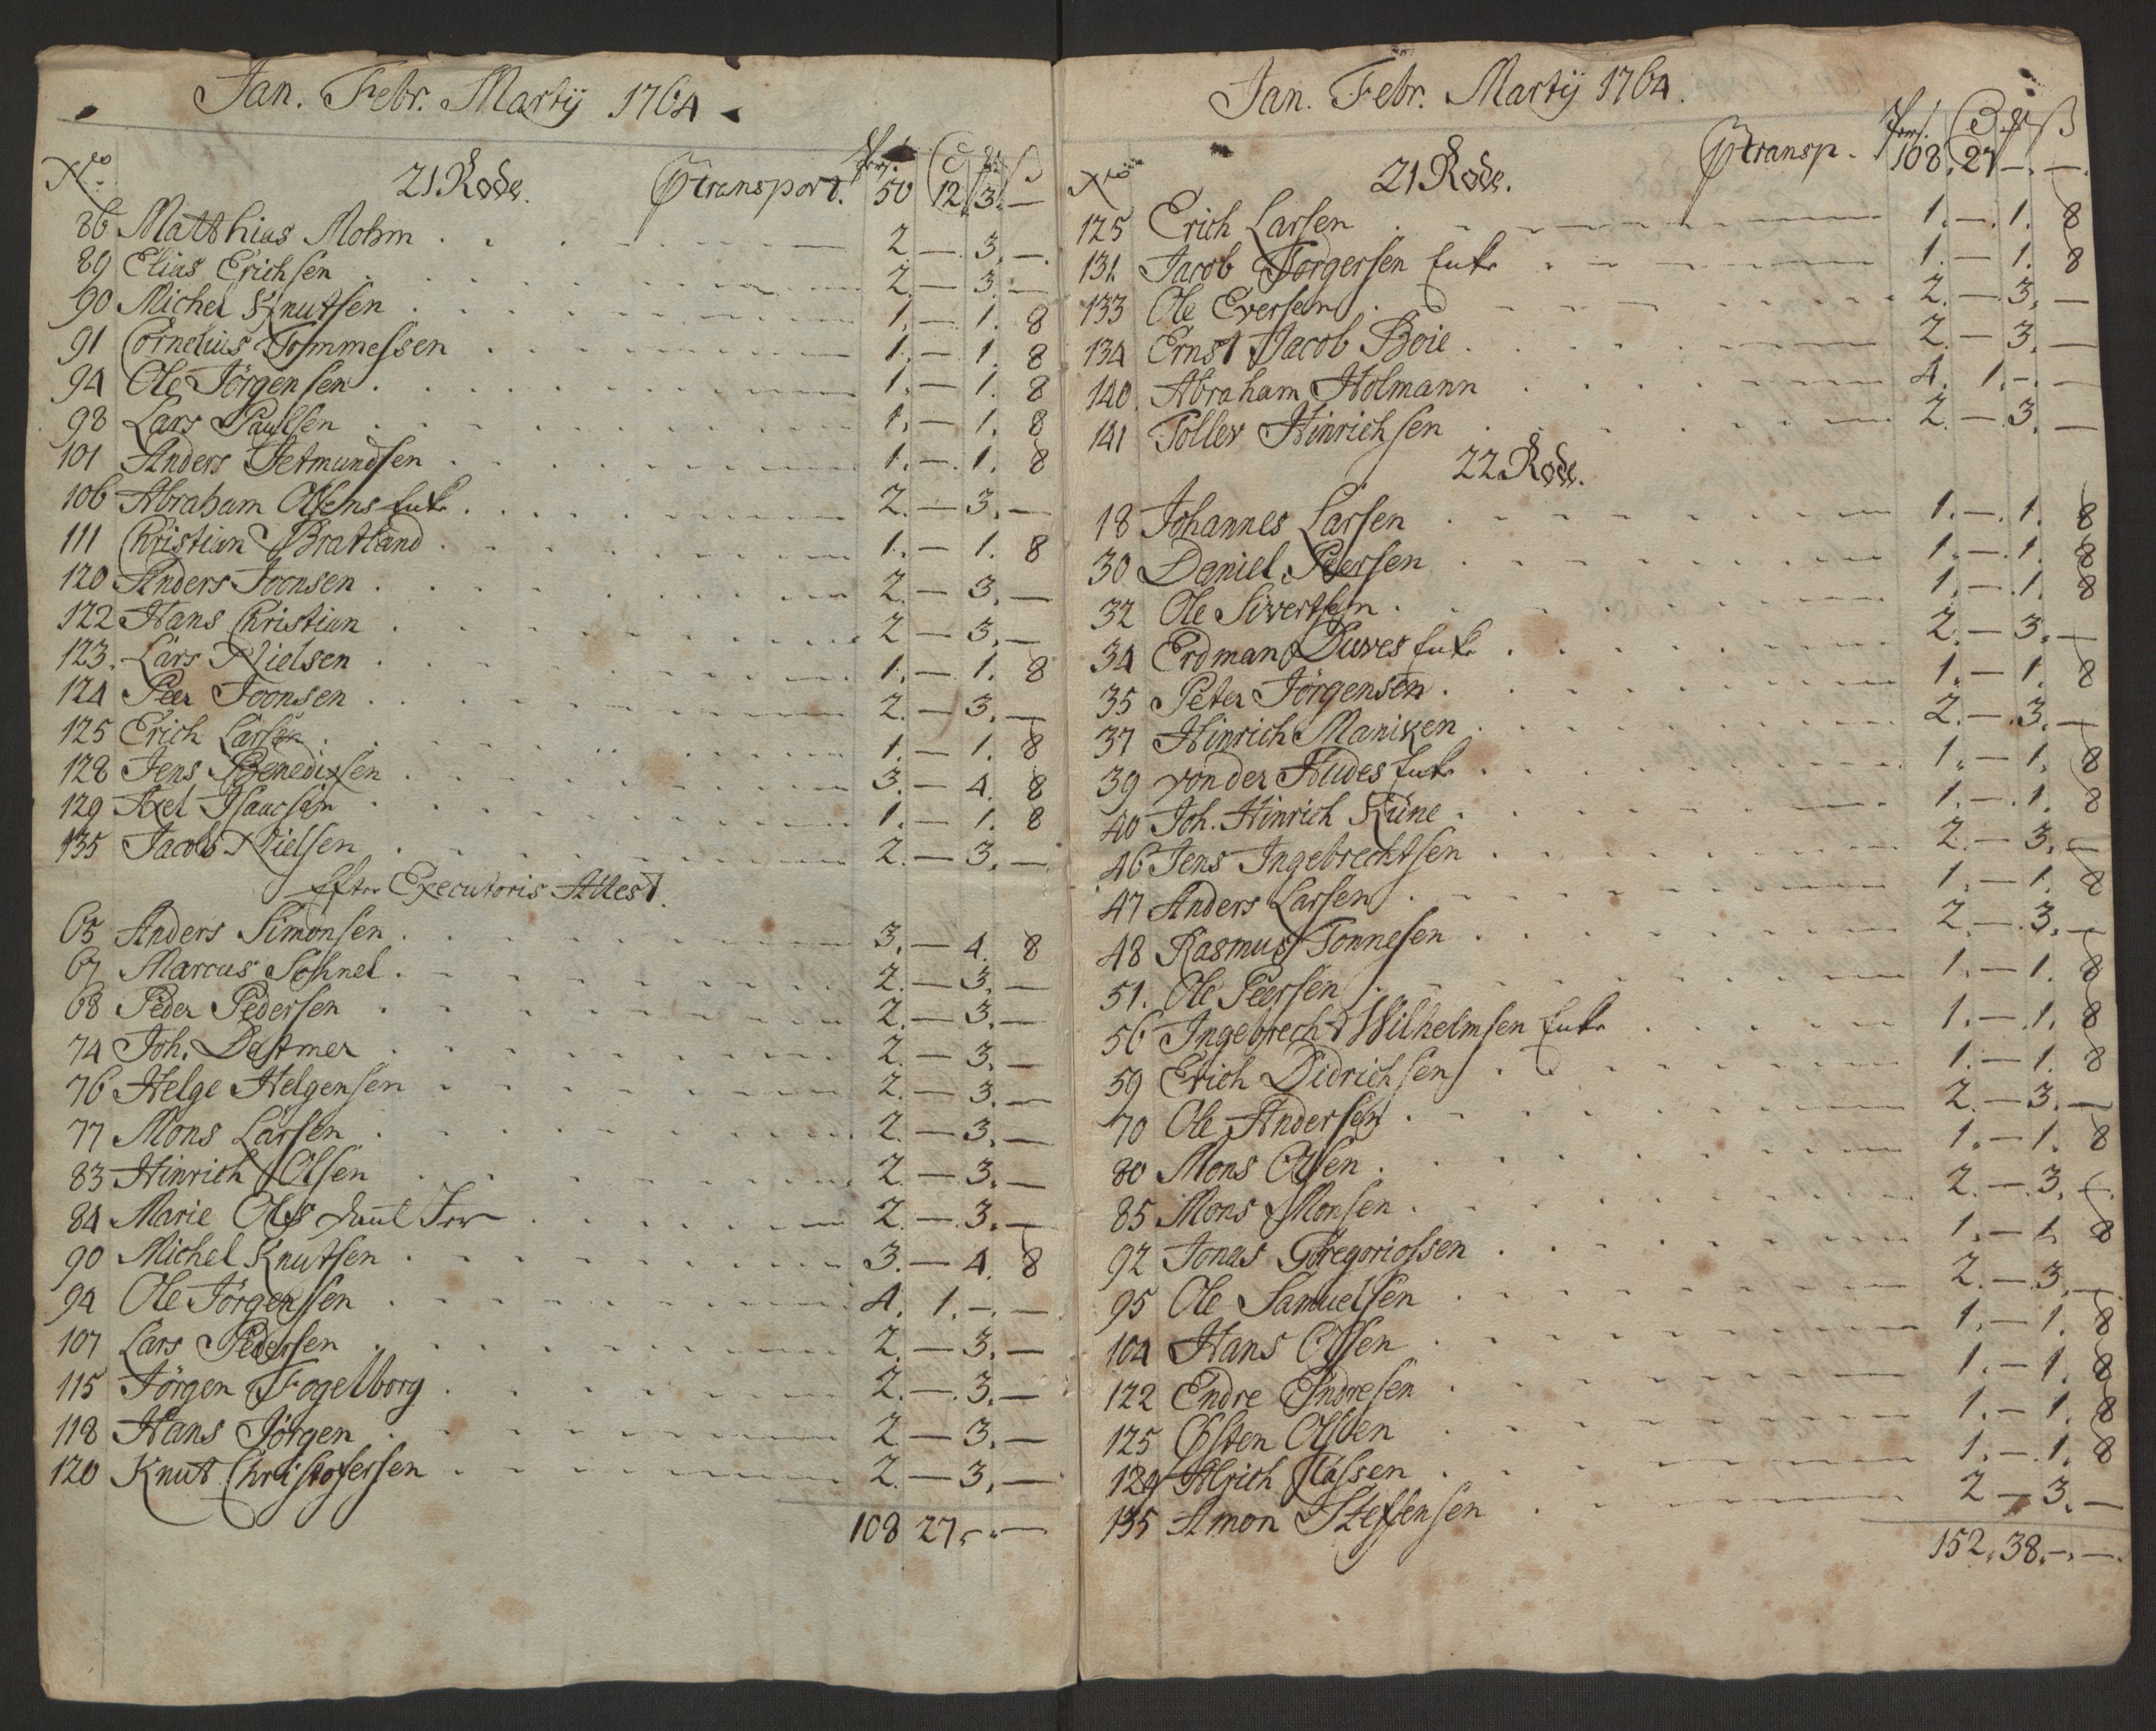 Jan. Febr. Martij 1764
No. 21 Rode. transport. Pers. 50 12. 3. —
86 Matthias Mohm 2. — 3. —
89 Elias Erichsen 2. — 3. —
90 Michel Knutsen 1. — 1. 8
91 Cornelius Tommessen 1. — 1. 8
94 Ole Jörgensen 1. — 1. 8
98 Lars Paulsen 1. — 1. 8
101 Anders Jetmundsen 1. — 1. 8
106 Abraham Olsens Enke 2. — 3. —
111 Christian Bratland 1. — 1. 8
120 Anders Joonsen 2. — 3. —
122 Hans Christian 2. — 3. —
123. Lars Nielsen 1. — 1. 8
124 Peer Joonsen 2. — 3. —
125 Erich Larsen 1. — 1. 8
128 Jens Benedixsen 3. — 4. 8
129 Axel Isaacsen 1. — 1. 8
135 Jacob Nielsen 2. — 3. —
Efter Executoris Attest.
65 Anders Simonsen 3. — 4. 8
67 Marcus Sohnel 2. — 3. —
68 Peder Pedersen 2. — 3. —
74 Joh. Dastmer 2. — 3. —
76 Helge Helgensen 2. — 3. —
77 Mons Larsen 2. — 3. —
83 Hinrich Olsen 2. — 3. —
84 Marie Ols 2. — 3. —
90 Michel Knutsen 3. — 4. 8
94 Ole Jörgensen 4. 1. —. —
107 Lars Pedersen 2. — 3. —
115 Jörgen Fogelborg 2. — 3. —
118 Hans Jörgen 2. — 3. —
120 Knut Christofersen 2. — 3. —
108 27. —. —
Jan. Febr. Martij 1764.
No. 21 Rode. transp. Pers. 108. 27 —. —.
125 Erich Larsen 1. —. 1. 8
131 Jacob Torgersen Enke 1. — 1. 8
133 Ole Eversen 2. — 3. —
134 Ernst Jacob Boie 2. — 3. —
140. Abraham Holmann 4. 1. —. —
141 Toller Hinrichsen 2. — 3. —
22 Rode.
18 Johannes Larsen 1. —. 1. 8
30 Daniel Peersen 1. —. 1. 8
32 Ole Sivertsen 1. — 1. 8
34 Erdman Duves Enke 2. — 3. —
35 Peter Jörgensen 1. — 1. 8
37 Hinrich Maniken 2. — 3. —
39 von der Hudes Enke 1. — 1. 8
40 Joh. Hinrich Küne 1. — 1. 8
46 Jens Ingebrechtsen 2. — 3. —
47 Anders Larsen 1. — 1. 8
48 Rasmus Tonnesen 2. — 3. —
51. Ole Peersen 1. — 1. 8
56 Ingebrecht Wilhelmsen Enke 1. — 1. 8
59 Erich Didrichsen 1. — 1. 8
70 Ole Andersen 2. — 3. —
80 Mons Olsen 1. — 1. 8
85 Mons Monsen 2. — 3. —
92 Jonas Gregoriossen 1. — 1. 8
95 Ole Samuelsen 2. — 3. —
104 Hans Olsen 1. — 1. 8
122 Endre Endresen 1. — 1. 8
125 Östen Olsen 1. — 1. 8
129 Classen 1. — 1. 8
135 Amon Steffensen 2 — 3. —
152. 38. —. —.